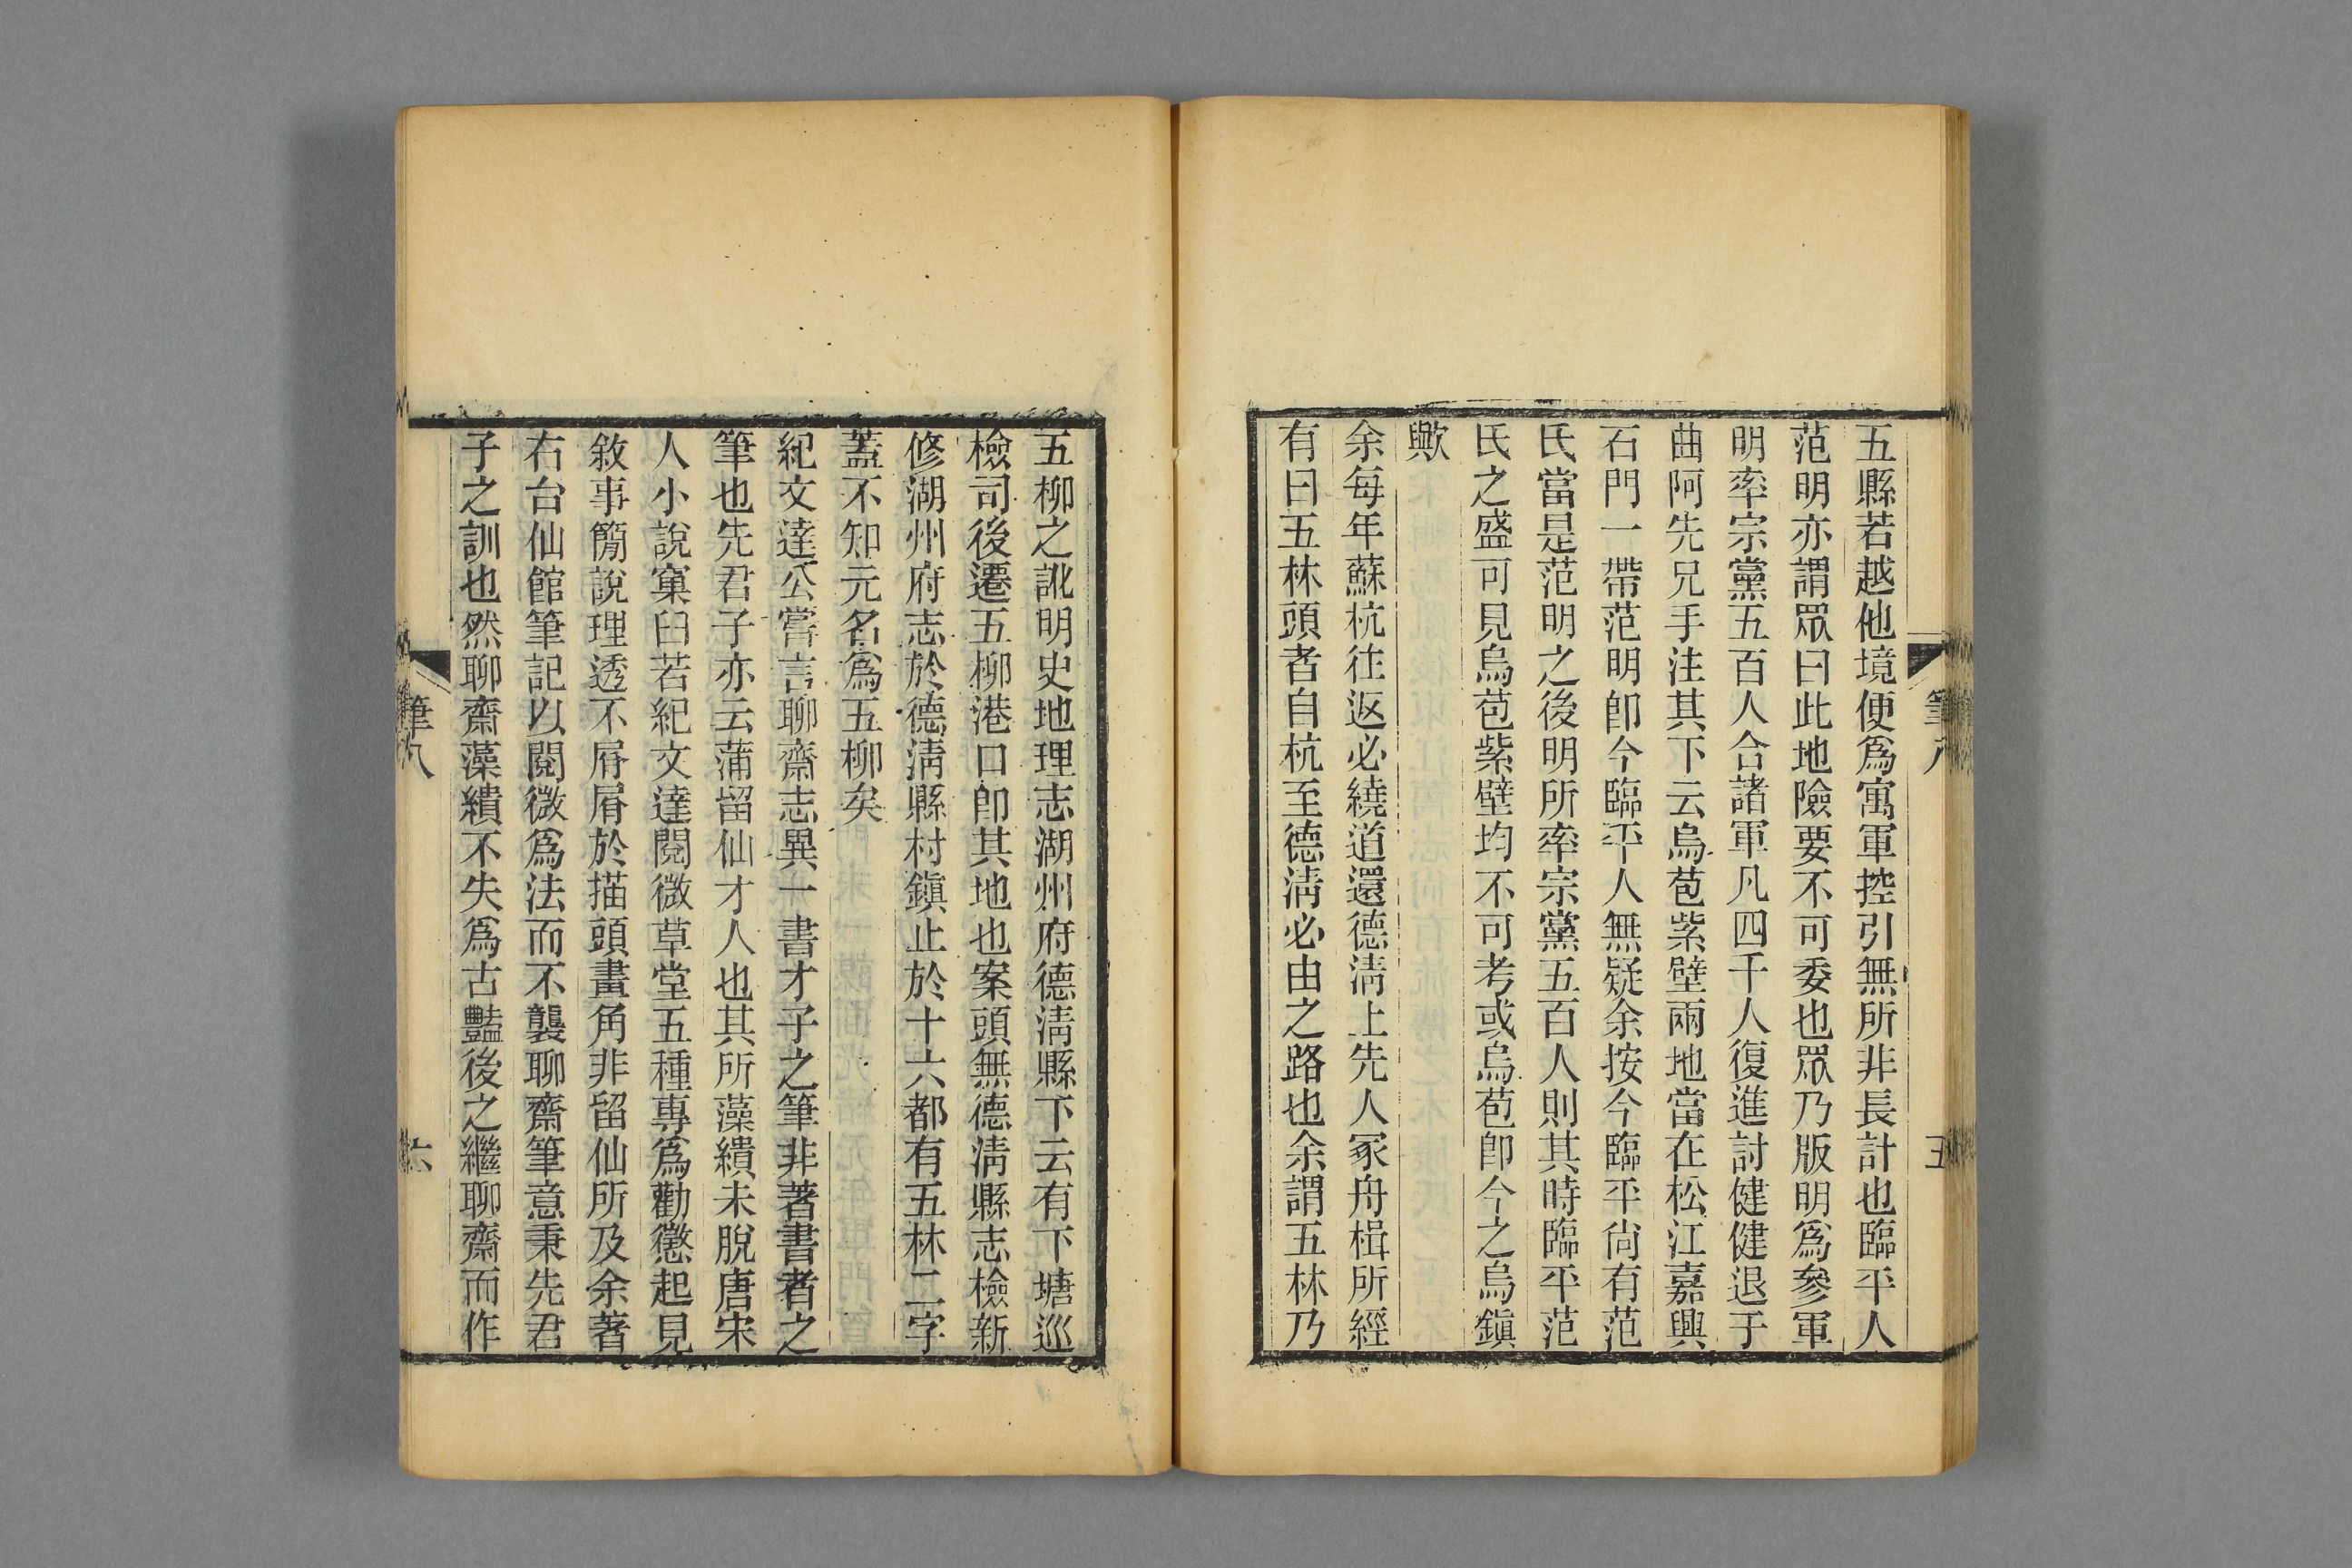 五縣若越他境便爲寓軍控引無所非長計也臨平人
范明亦謂眾曰此地險要不可委也眾乃版明爲參軍
明率宗黨五百人合諸軍凡四千人復進討健健退于
曲阿先兄手注其下云烏苞紫壁兩地當在松江嘉興
石門一帶范明卽今臨平人無疑余按今臨平尙有范
氏當是范明之後明所率宗黨五百人則其時臨平范
氏之盛可見烏苞紫壁均不可考或烏苞卽今之烏鎭
歟
余每年蘇杭往返必繞道還德淸上先人冢舟楫所經
有曰五林頭者自杭至德淸必由之路也余謂五林乃
筆八
五
五柳之訛明史地理志湖州府德淸縣下云有下塘巡
檢司後遷五柳港口卽其地也案頭無德淸縣志檢新
修湖州府志於德淸縣村鎭止於十六都有五林二字
蓋不知元名爲五柳矣
紀文達公嘗言聊齋志異一書才子之筆非著書者之
筆也先君子亦云蒲留仙才人也其所藻繢未脫唐宋
人小說窠臼若紀文達閱微草堂五種專爲勸懲起見
敘事簡說理透不屑屑於描頭畫角非留仙所及余著
右台仙館筆記以閱微爲法而不襲聊齋筆意秉先君
子之訓也然聊齋藻繢不失爲古豔後之繼聊齋而作
筆八
六